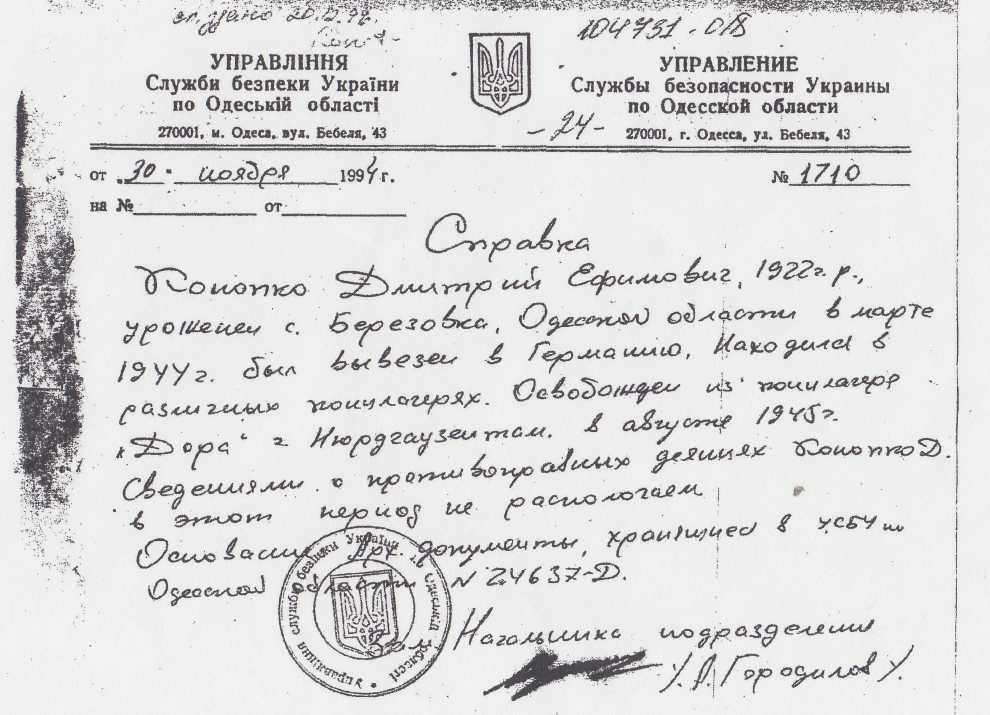 104731
УПРАВЛІННЯ
Служби безпеки України
по Одеській області
270001, м. Одеса, вул. Бебеля, 43
УПРАВЛЕНИЕ
Службы безопасности Украины
по Одесской области
-24-
270001, г. Одесса, ул. Бебеля, 43
от 30 ноября 1994 г.
№ 1710
на № от
Справка
Конопко Дмитрий Ефимович, 1922 г.р.,
уроженец с. Березовка, Одесской области в марте
1944 г. был вывезен в Германию. Находился в
различных концлагерях. Освобожден из концлагеря
"Дора" г. в августе 1945 г.
Сведениями о противоправных деяниях Конопко Д.
в этот период не распологаем
Основание Арх. документы, хранящиеся в УСБУ по
Одесской области N 24637-Д.
Начальника подразделения
Городилов
Управління служби безпеки України в одеській області